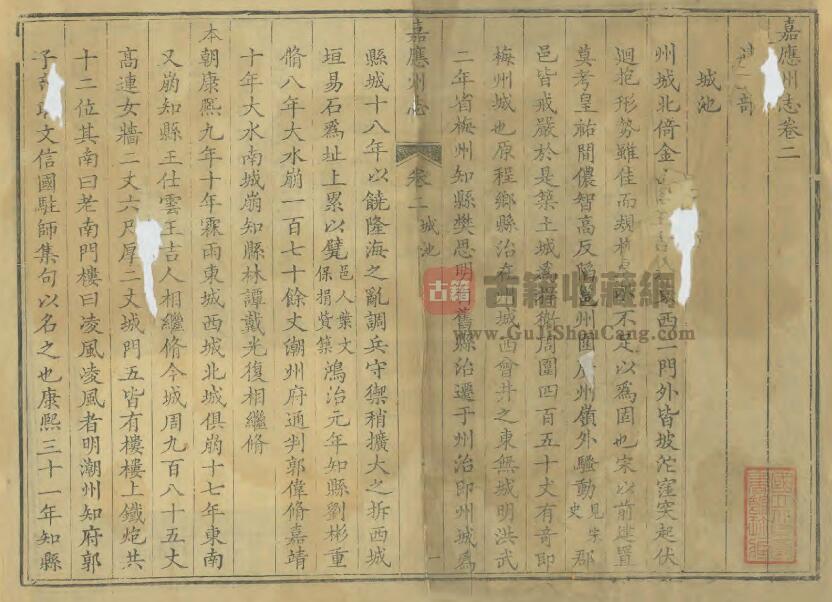 嘉應州志卷二
建置部
城池
州城北倚金山 西二門外皆坡沱窪突起伏
迴抱形勢雖佳而規 不足以爲固也宋以前建置
莫考皇祐間儂智高反陷邕州圍廣州嶺外騷動見宋史郡
邑皆戒嚴於是築土城 周圍四百五十丈有奇即
梅州城也原程鄉縣治在州城西會井之東無城明洪武
二年省梅州知縣樊思明 舊縣治遷于州治即州城爲
嘉應州志 卷二 城池 一
縣城十八年以饒隆海之亂調兵守禦稍擴大之拆西城
垣易石爲址上累以甓邑人葉文保捐貲築鴻治元年知縣劉彬重
脩八年大水崩一百七十餘丈潮州府通判郭偉脩嘉靖
十年大水南城崩知縣林譚戴光復相繼脩
本朝康熙九年十年霖雨東城西城北城俱崩十七年東南
又崩知縣王仕雲王吉人相繼脩今城周九百八十五丈
高連女牆二丈六尺厚二丈城門五皆有樓樓上鐵炮共
十二位其南曰老南門樓曰凌風凌風者明潮州知府郭
子章 文信國駐師集句以名之也康熙三十一年知縣
古籍 古籍收藏網
www.GuJiShouCang.com